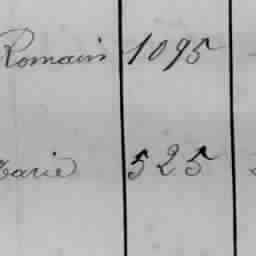 Romain 1095
Marie 525